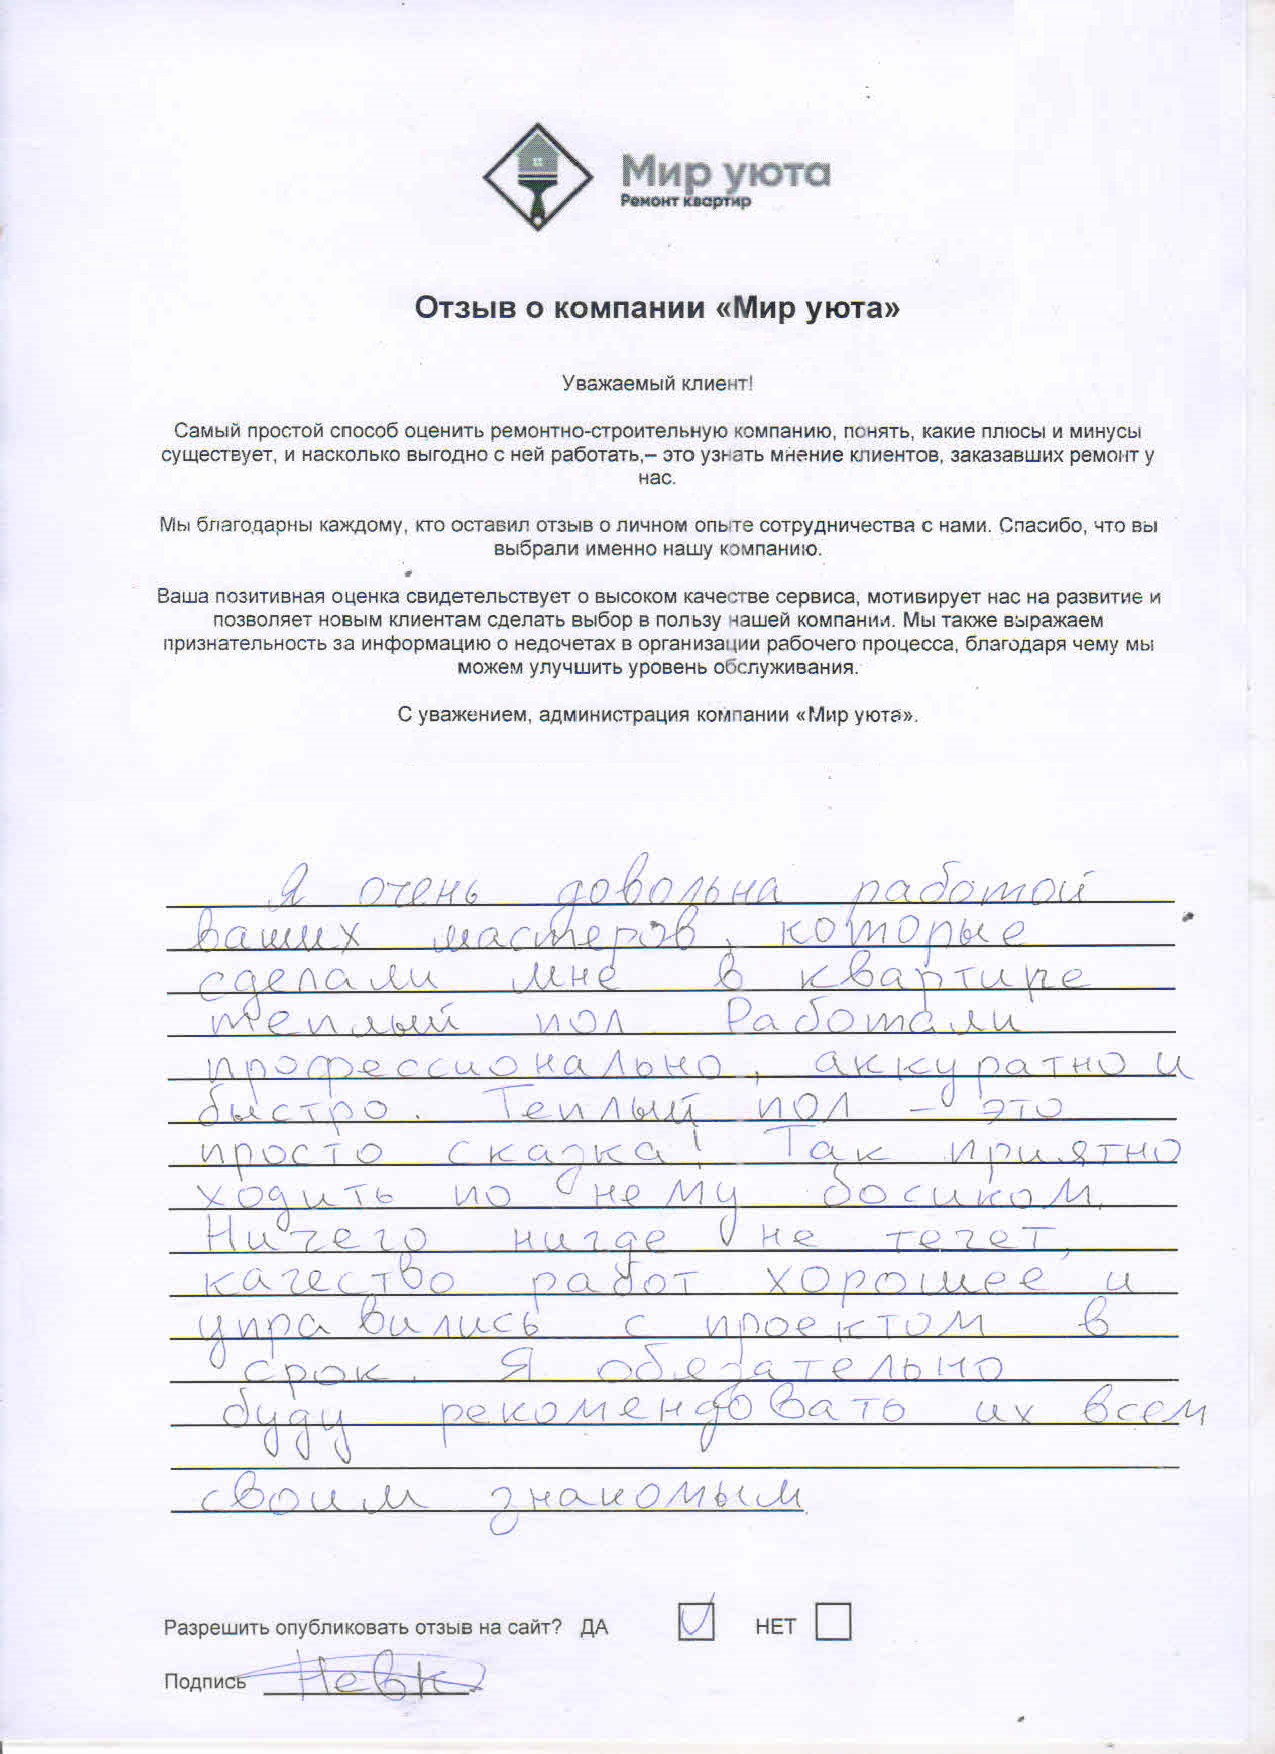 Мир уюта
Ремонт квартир
Отзыв о компании «Мир уюта»
Уважаемый клиент!
Самый простой способ оценить ремонтно-строительную компанию, понять, какие плюсы и минусы
существует, и насколько выгодно с ней работать,– это узнать мнение клиентов, заказавших ремонт у
нас.
Мы благодарны каждому, кто оставил отзыв о личном опыте сотрудничества с нами. Спасибо, что вы
выбрали именно нашу компанию.
Ваша позитивная оценка свидетельствует о высоком качестве сервиса, мотивирует нас на развитие и
позволяет новым клиентам сделать выбор в пользу нашей компании. Мы также выражаем
признательность за информацию о недочетах в организации рабочего процесса, благодаря чему мы
можем улучшить уровень обслуживания.
С уважением, администрация компании «Мир уюта».
Я очень довольна работой
ваших мастеров, которые
сделали мне в квартире
теплый пол Работали
профессионально, аккуратно и
быстро. Теплый пол – это
просто сказка! Так приятно
ходить по нему босиком.
Ничего нигде не течет,
качество работ хорошее и
управились с проектом в
срок. Я обезательно
буду рекомендовать их всем
своим знакомым.
Разрешить опубликовать отзыв на сайт? ДА НЕТ
Подпись